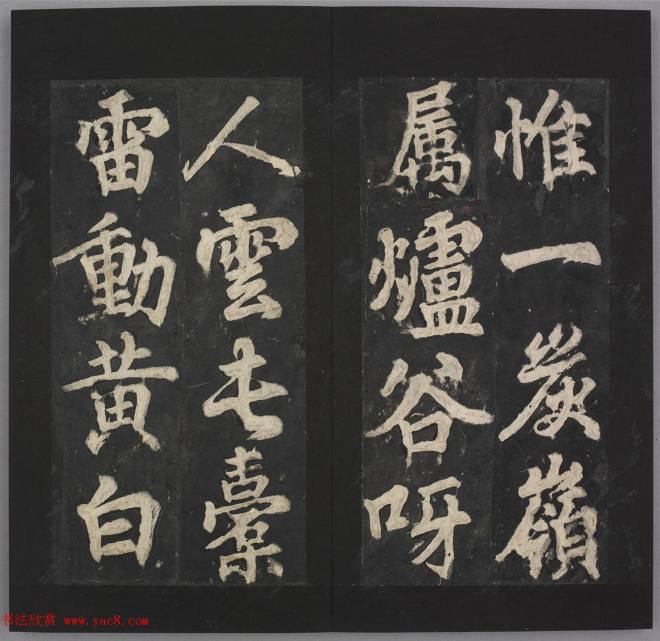 惟一炭嶺
属爐谷呀
人雲屯橐
雷動黄白
书法欣赏 www.yac8.com